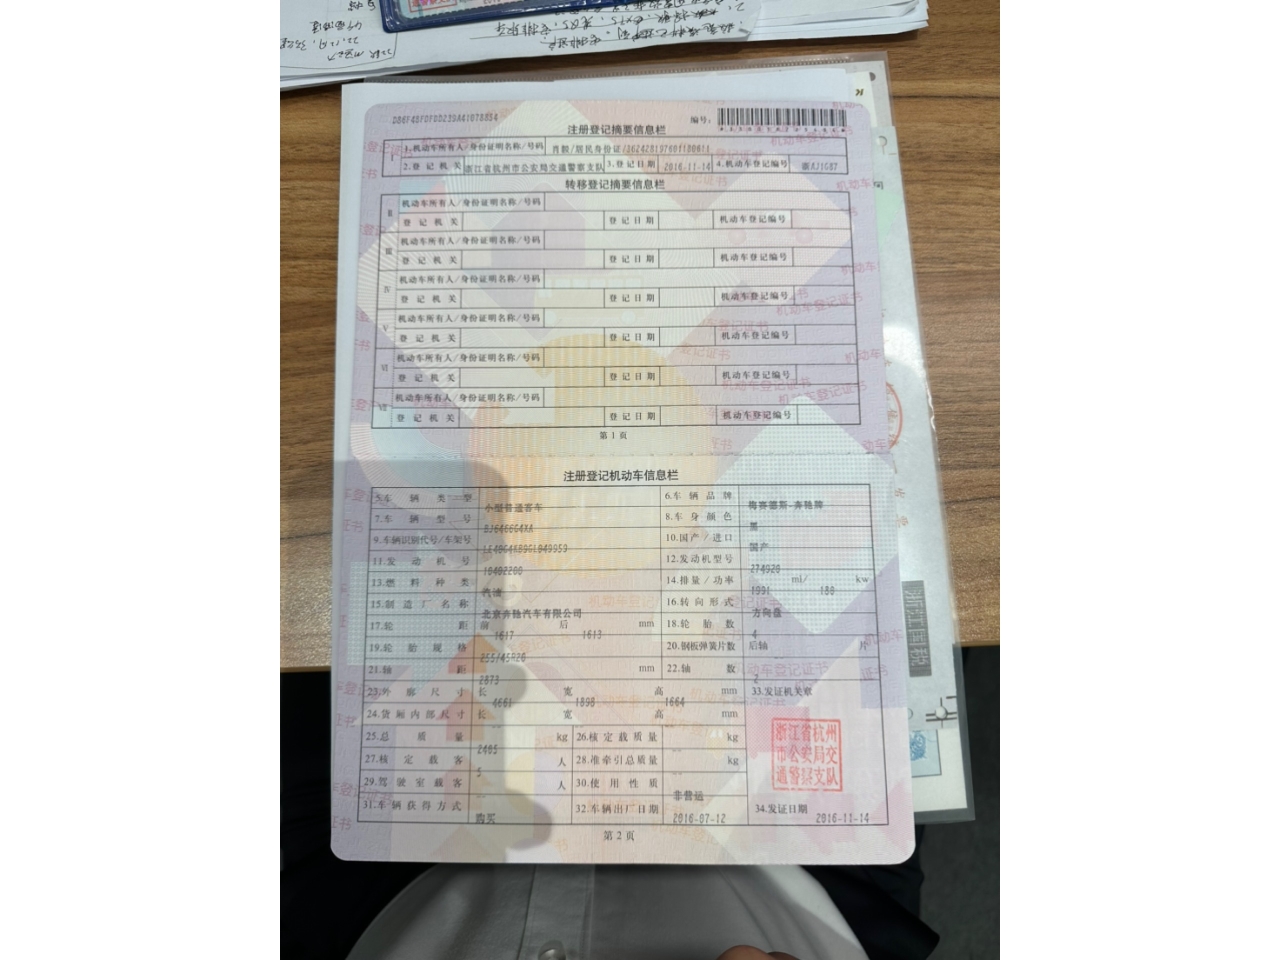 注册登记摘要信息栏
编号:
Ⅰ 1.机动车所有人/身份证明名称/号码 肖毅/居民身份证/362428197601180011
2.登记机关 浙江省杭州市公安局交通警察支队 3.登记日期 2016-11-14 4.机动车登记编号
转移登记摘要信息栏
Ⅱ 机动车所有人/身份证明名称/号码
登记机关 登记日期 机动车登记编号
Ⅲ 机动车所有人/身份证明名称/号码
登记机关 登记日期 机动车登记编号
Ⅳ 机动车所有人/身份证明名称/号码
登记机关 登记日期 机动车登记编号
Ⅴ 机动车所有人/身份证明名称/号码
登记机关 登记日期 机动车登记编号
Ⅵ 机动车所有人/身份证明名称/号码
登记机关 登记日期 机动车登记编号
Ⅶ 机动车所有人/身份证明名称/号码
登记机关 登记日期 机动车登记编号
第1页
注册登记机动车信息栏
5.车辆类型 小型普通客车 6.车辆品牌 梅赛德斯-奔驰牌
7.车辆型号 8.车身颜色 黑
9.车辆识别代号/车架号 10.国产/进口 国产
11.发动机号 12.发动机型号 274920
13.燃料种类 汽油 14.排量/功率 1991 ml/ kw
15.制造厂名称 北京奔驰汽车有限公司 16.转向形式 方向盘
17.轮距 前 1617 后 1613 mm 18.轮胎数 4
19.轮胎规格 255/45R20 20.钢板弹簧片数 后轴 片
21.轴距 2873 mm 22.轴数 2
23.外廓尺寸 长 4661 宽 1898 高 1664 mm 33.发证机关章
24.货厢内部尺寸 长 宽 高 mm
浙江省杭州
市公安局交
通警察支队
25.总质量 2405 kg 26.核定载质量 -- kg
27.核定载客 5 人 28.准牵引总质量 -- kg
29.驾驶室载客 -- 人 30.使用性质 非营运
31.车辆获得方式 购买 32.车辆出厂日期 2016-07-12 34.发证日期 2016-11-14
第2页
浙江国税